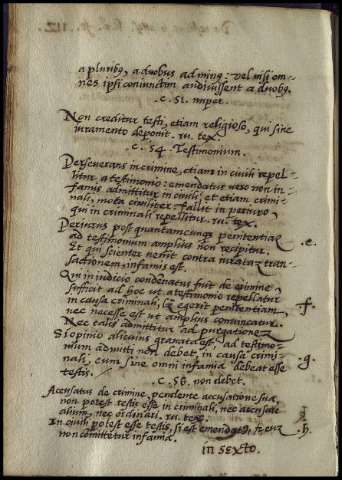 a pluribꝰ, a duobus ad minꝰ: vel nisi om-
nes ipsi coniunctim audivissent a duobꝰ.
.c. 51. nuper.
Non creditur testi, etiam religioso, qui sine
iuramento deponit. ru. tex.
.c. 54. Testimonium.
Perseverans in crimine, etiam in civili repel-
litur a testimonio: emendatus vero non in-
famis admittitur in civili, et etiam crimi-
nali, mota civiliter. fallit in periuro,
qui in criminali repellitur. ru. tex.
Periurus post quantamcunqꝫ penitentiam
ad testimonium amplius non recipitur. .e.
Et qui scienter venit contra iuratam tran-
sactionem, infamis est.
Qui in iudicio condenatus fuit de crimine,
sufficit ad hoc ut a testimonio repellatur
in causa criminali, licꝫ egerit penitentiam, .f.
nec necesse est ut amplius convincatur.
Nec talis admittitur ad purgationem.
Si opinio alicuius gravata est, ad testimo-
nium admitti non debet, in causa crimi- .g.
nali, cum sine omni infamia debeat esse
testis.
.c. 56. non debet.
Accusatus de crimine, pendente accusatione sua,
non potest testis esse in criminali, nec accusare
alium, nec ordinari. ru. tex.
In civili potest esse testis, si est emendatꝰ, .h.
non comittetur infamia.
in sexto.